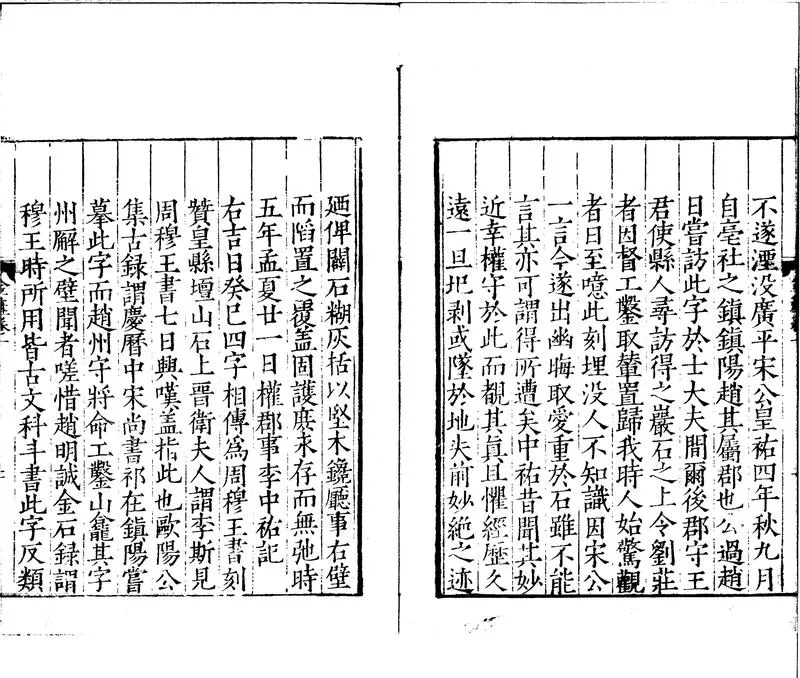 不遂湮没廣平宋公皇祐四年秋九月
自亳社之鎮鎮陽趙其屬郡也公過趙
日嘗訪此字於士大夫間爾後郡守王
君使縣人尋訪得之巖石之上令劉莊
者因督工鑿取輦置歸我時人始驚觀
者日至噫此刻埋没人不知識因宋公
一言今遂出幽晦取愛重於石雖不能
言其亦可謂得所遭矣中祐昔聞其妙
近幸權守於此而觀其真且懼經歷久
遠一旦圯剥或墜於地失前妙絶之迹
廼俾闢石糊灰括以堅木鑱廳事右壁
而䧟置之覆盖固護庶永存而無弛時
五年孟夏廿一日權郡事李中祐記
右吉日癸巳四字相傳爲周穆王書刻
贊皇縣壇山石上晉衛夫人謂李斯見
周穆王書七日興嘆盖指此也歐陽公
集古録謂慶曆中宋尚書祁在鎮陽嘗
摹此字而趙州守將命工鑿山龕其字
州廨之壁聞者嗟惜趙明誠金石録謂
穆王時所用皆古文科斗書此字反類